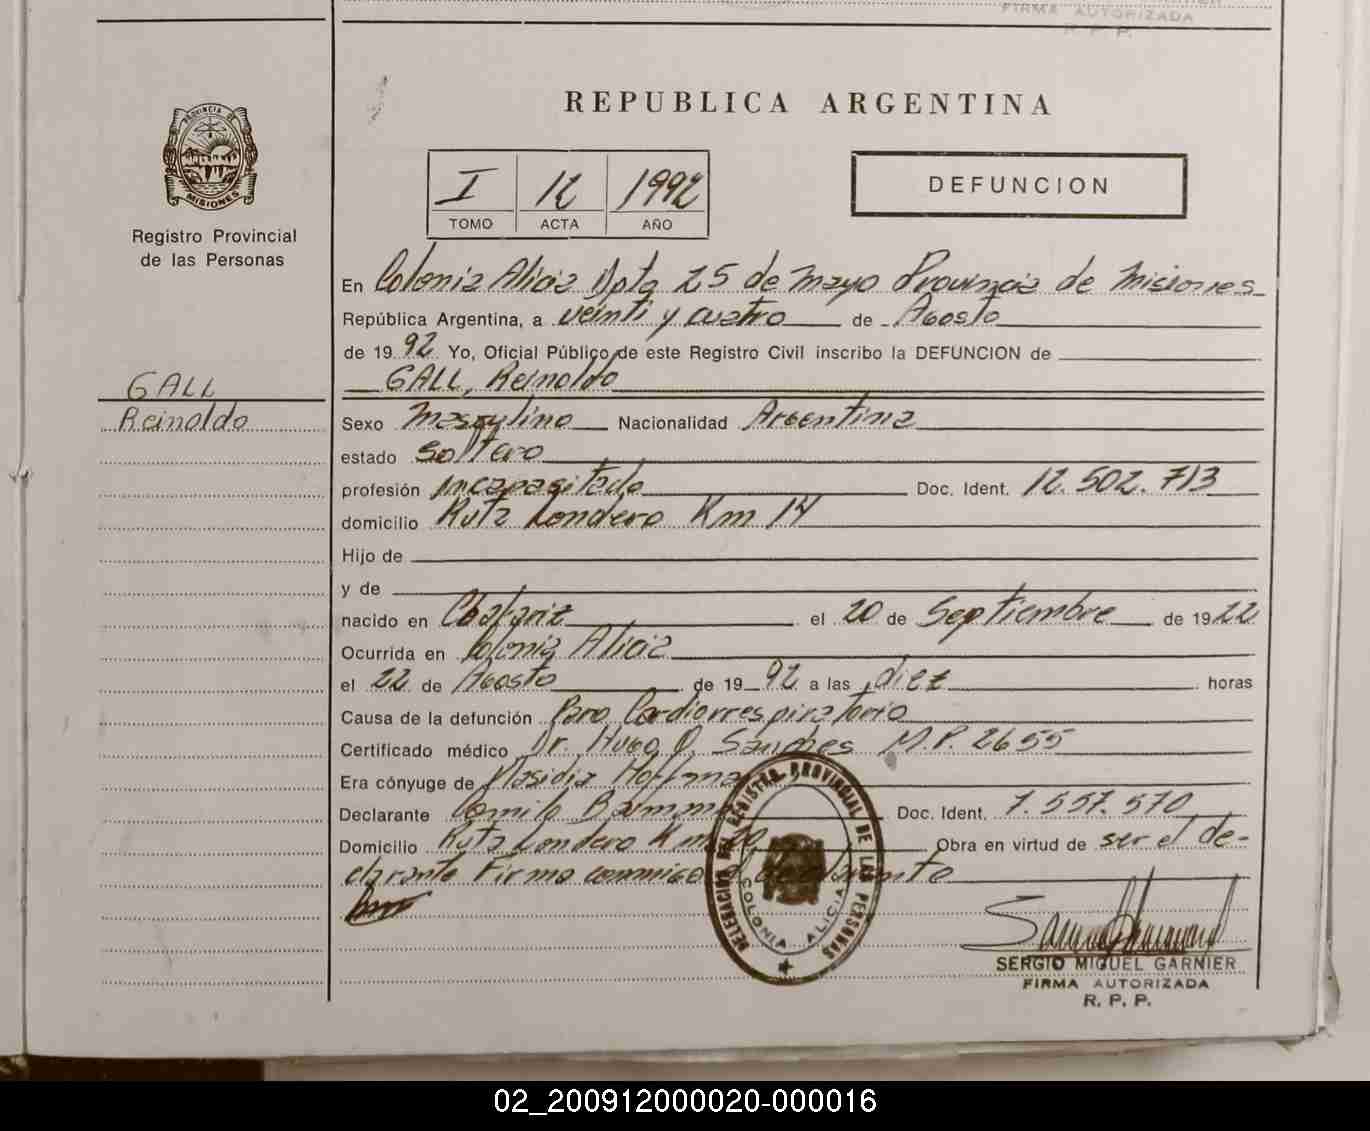 FIRMA AUTORIZADA
R. P. P.
PROVINCIA DE
MISIONES
Registro Provincial
de las Personas
REPUBLICA ARGENTINA
I 12 1992
TOMO ACTA AÑO
DEFUNCION
En Colonia Alicia Dpto 25 de Mayo Provincia de Misiones
República Argentina, a veinti y cuatro de Agosto
de 1992 Yo, Oficial Público de este Registro Civil inscribo la DEFUNCION de
GALL, Reinoldo
GALL
Reinoldo
Sexo Masculino Nacionalidad Argentina
estado Soltero
profesión incapasitado Doc. Ident. 12.502.713
domicilio Ruta Londero Km 14
Hijo de
y de
nacido en Chafariz el 20 de Septiembre de 1922
Ocurrida en Colonia Alicia
el 22 de Agosto de 1992 a las diez horas
Causa de la defunción Paro Cardiorrespiratorio
Certificado médico Dr. Hugo O. Sanches M.P. 2655
Era cónyuge de Plasidia Hoffma
Declarante Camilo Doc. Ident. 7.557.570
Domicilio Ruta Londero Km Obra en virtud de ser el de-
clarante Firma conmigo
DELEGACION DEL REGISTRO PROVINCIAL DE LAS PERSONAS
COLONIA ALICIA
SERGIO MIGUEL GARNIER
FIRMA AUTORIZADA
R. P. P.
02_200912000020-000016